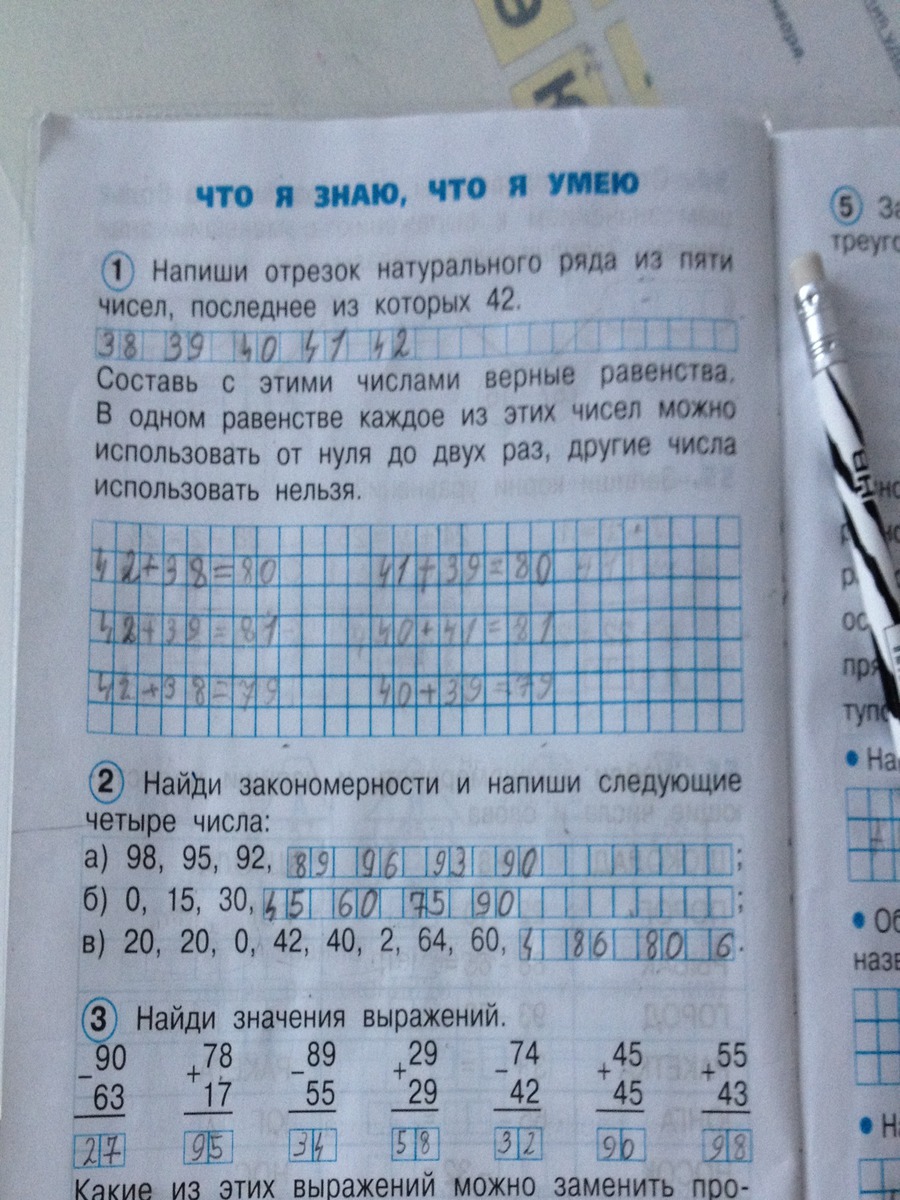 ЧТО Я ЗНАЮ, ЧТО Я УМЕЮ
1 Напиши отрезок натурального ряда из пяти
чисел, последнее из которых 42.
38 39 40 41 42
Составь с этими числами верные равенства.
В одном равенстве каждое из этих чисел можно
использовать от нуля до двух раз, другие числа
использовать нельзя.
42+38=80 41+39=80
42+39=81 40+41=81
42+38=79 40+39=79
2 Найди закономерности и напиши следующие
четыре числа:
а) 98, 95, 92, 89 96 93 90;
б) 0, 15, 30, 45 60 75 90;
в) 20, 20, 0, 42, 40, 2, 64, 60, 4 86 80 6.
3 Найди значения выражений.
−90 +78 −89 +29 −74 +45 +55
63 17 55 29 42 45 43
27 95 34 58 32 90 98
Какие из этих выражений можно заменить про-
5
треуг
тупо
• На
• Об
назв
• На